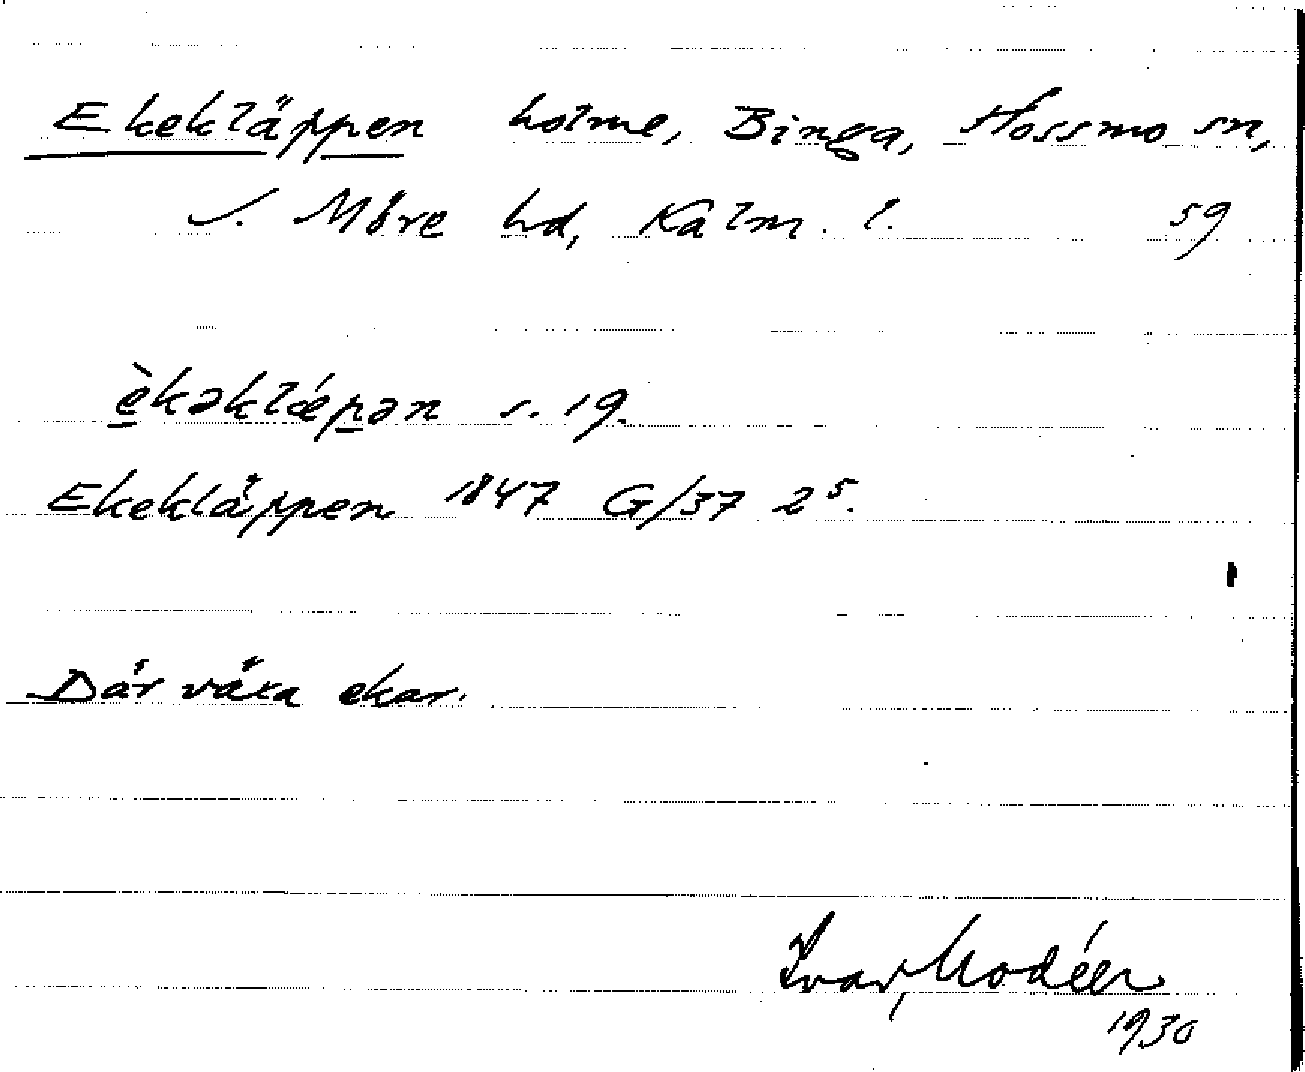 Ekekläppen holme, Binga, Hossmo sn,
S. Möre hd, Kalm. l. 59
èkəklǽpən s. 19.
Ekekläppen 1847 G/37 2⁵.
Där växa ekar.
Ivar Modéer
1930